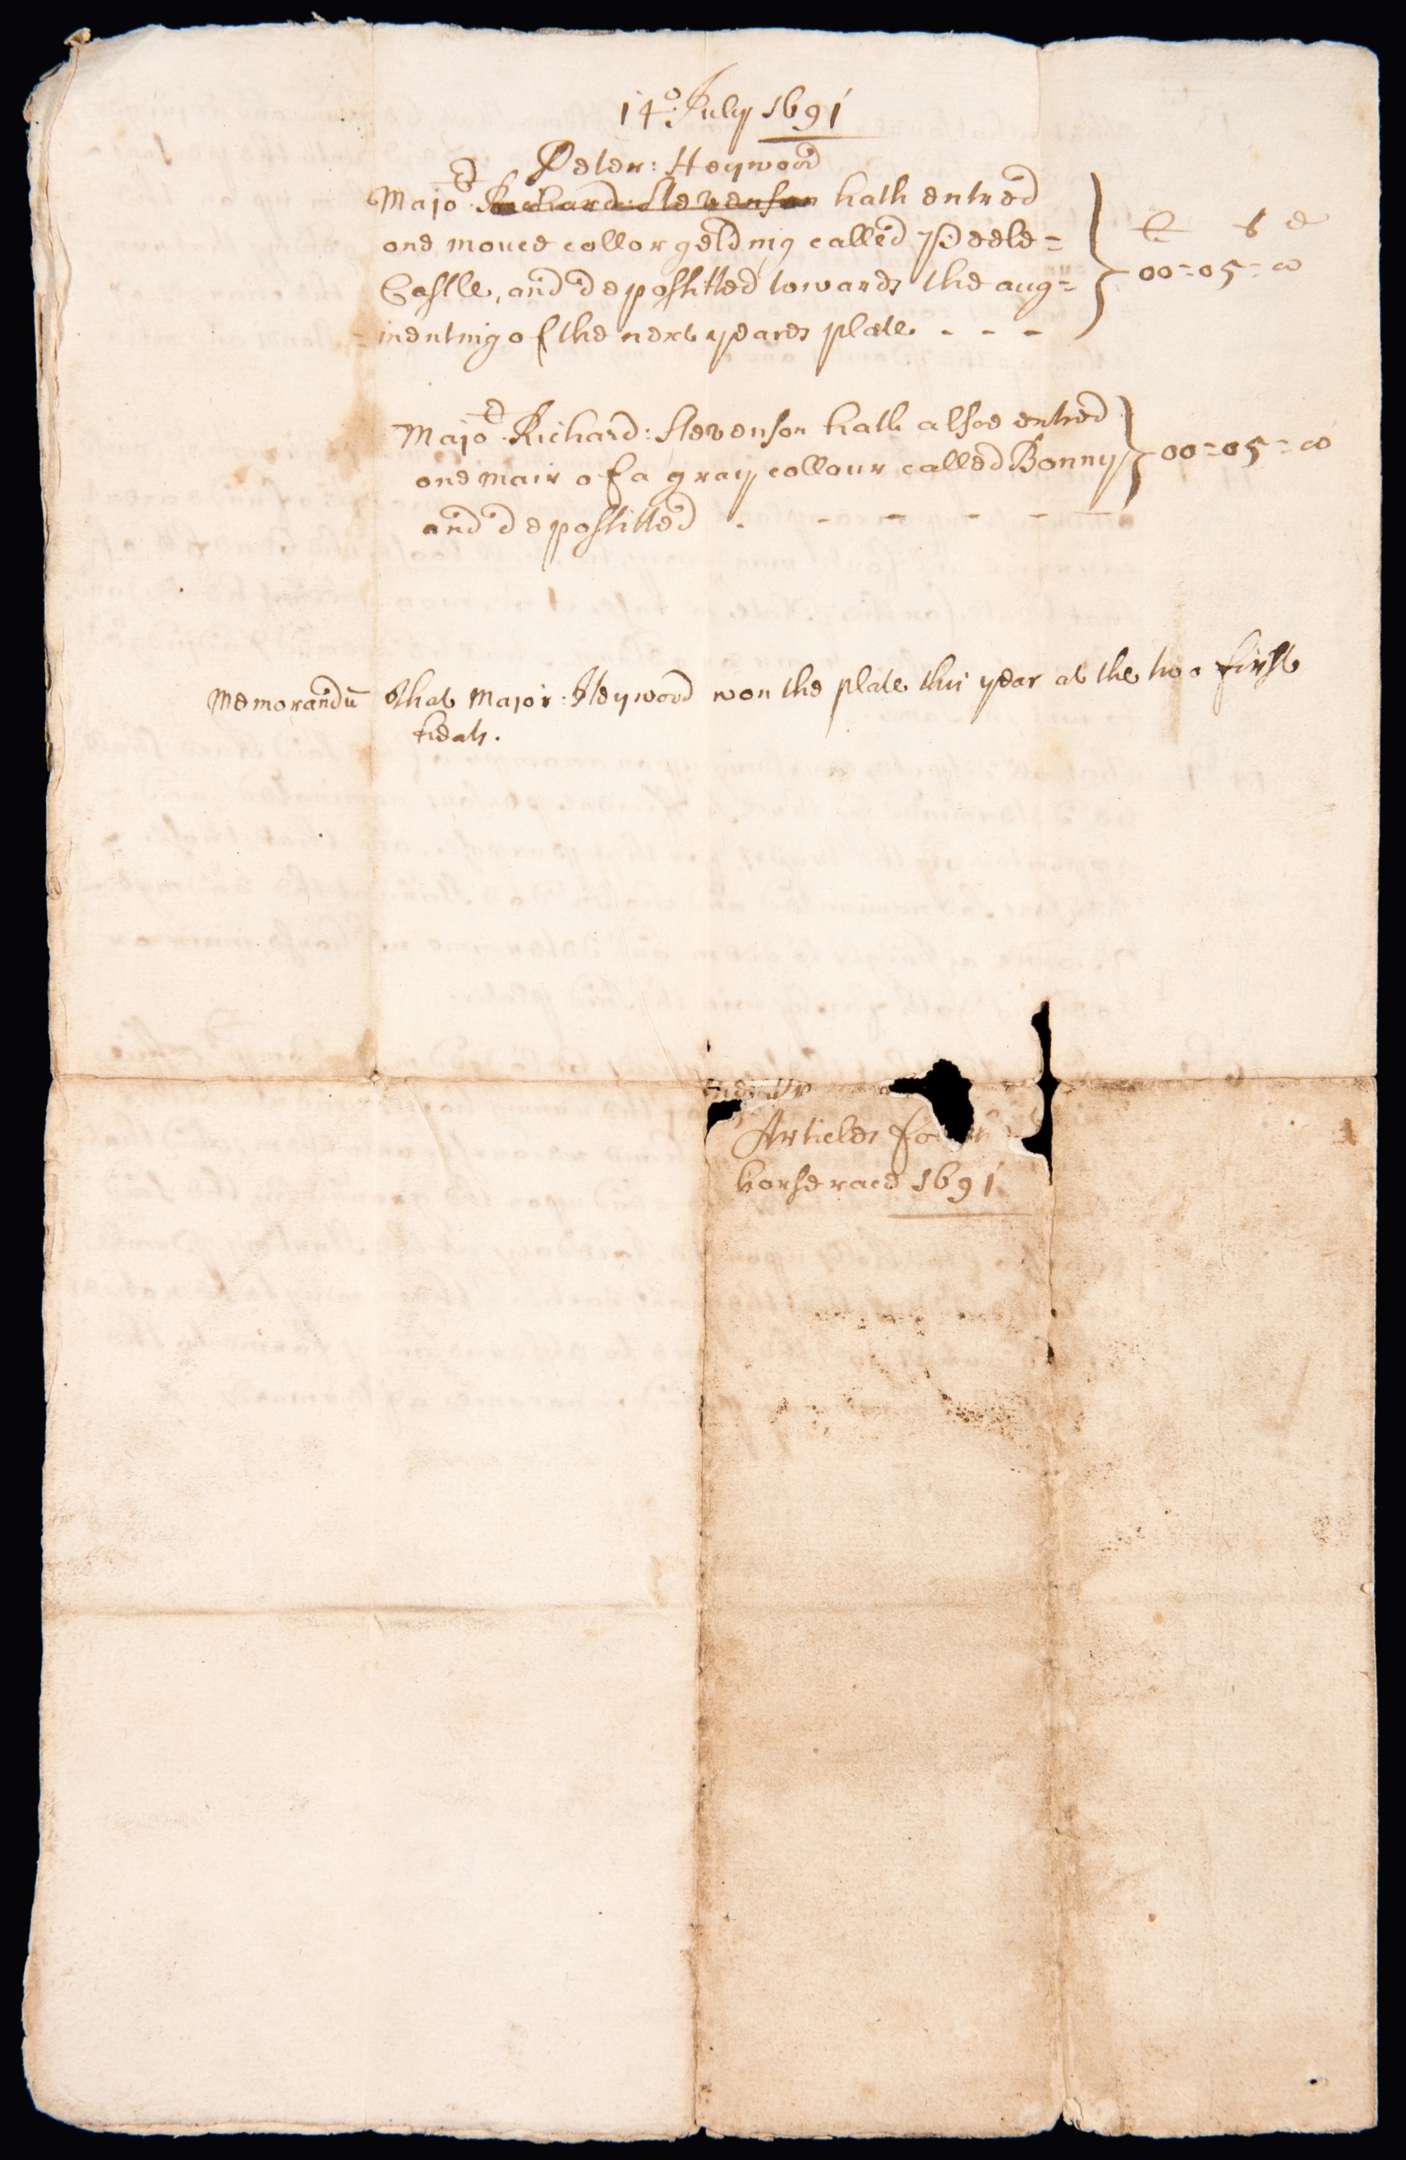 14o: July 1691
Peter: Heywood
Major Richard: Stevenson hath entred
one mouce collor gelding called Peele=
Castle, and depossitted towards the aug=
=menting of the next yeares plate - - -
£ s d
00=05=00
Major Richard: Stevenson hath alsoe entred
one mair of a gray collour called Bonny
and depossitted - - - - - -
00=05=00
Memorandu That Major: Heywood won the plate this year at the two first
heats.
Articles for
horse race 1691